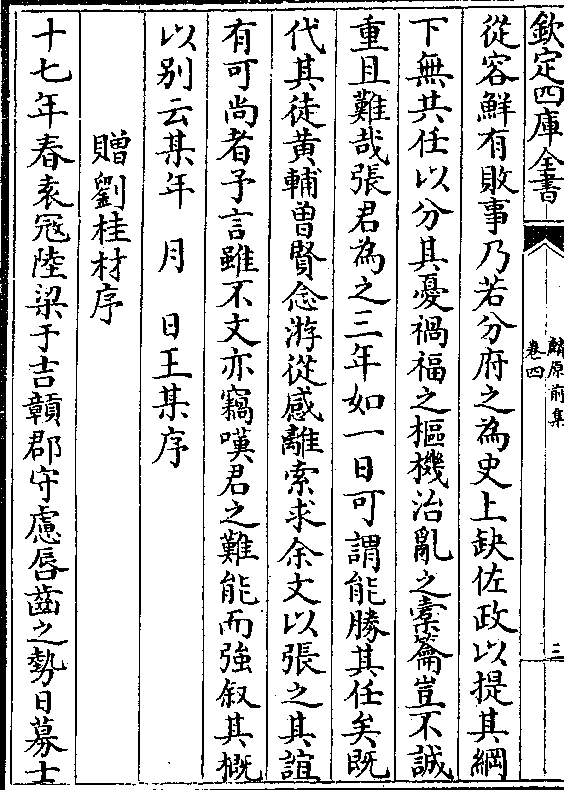 欽定四庫全書
麟原前集
卷四
三
從容鮮有敗事乃若分府之為史上缺佐政以提其綱
下無共任以分其憂禍福之樞機治亂之橐籥豈不誠
重且難哉張君為之三年如一日可謂能勝其任矣既
代其徒黄輔曽賢念游從感離索求余文以張之其誼
有可尚者予言雖不文亦竊嘆君之難能而強叙其概
以别云某年　月　日王某序
贈劉桂材序
十七年春袁冦陸梁于吉贛郡守慮唇齒之勢日募士